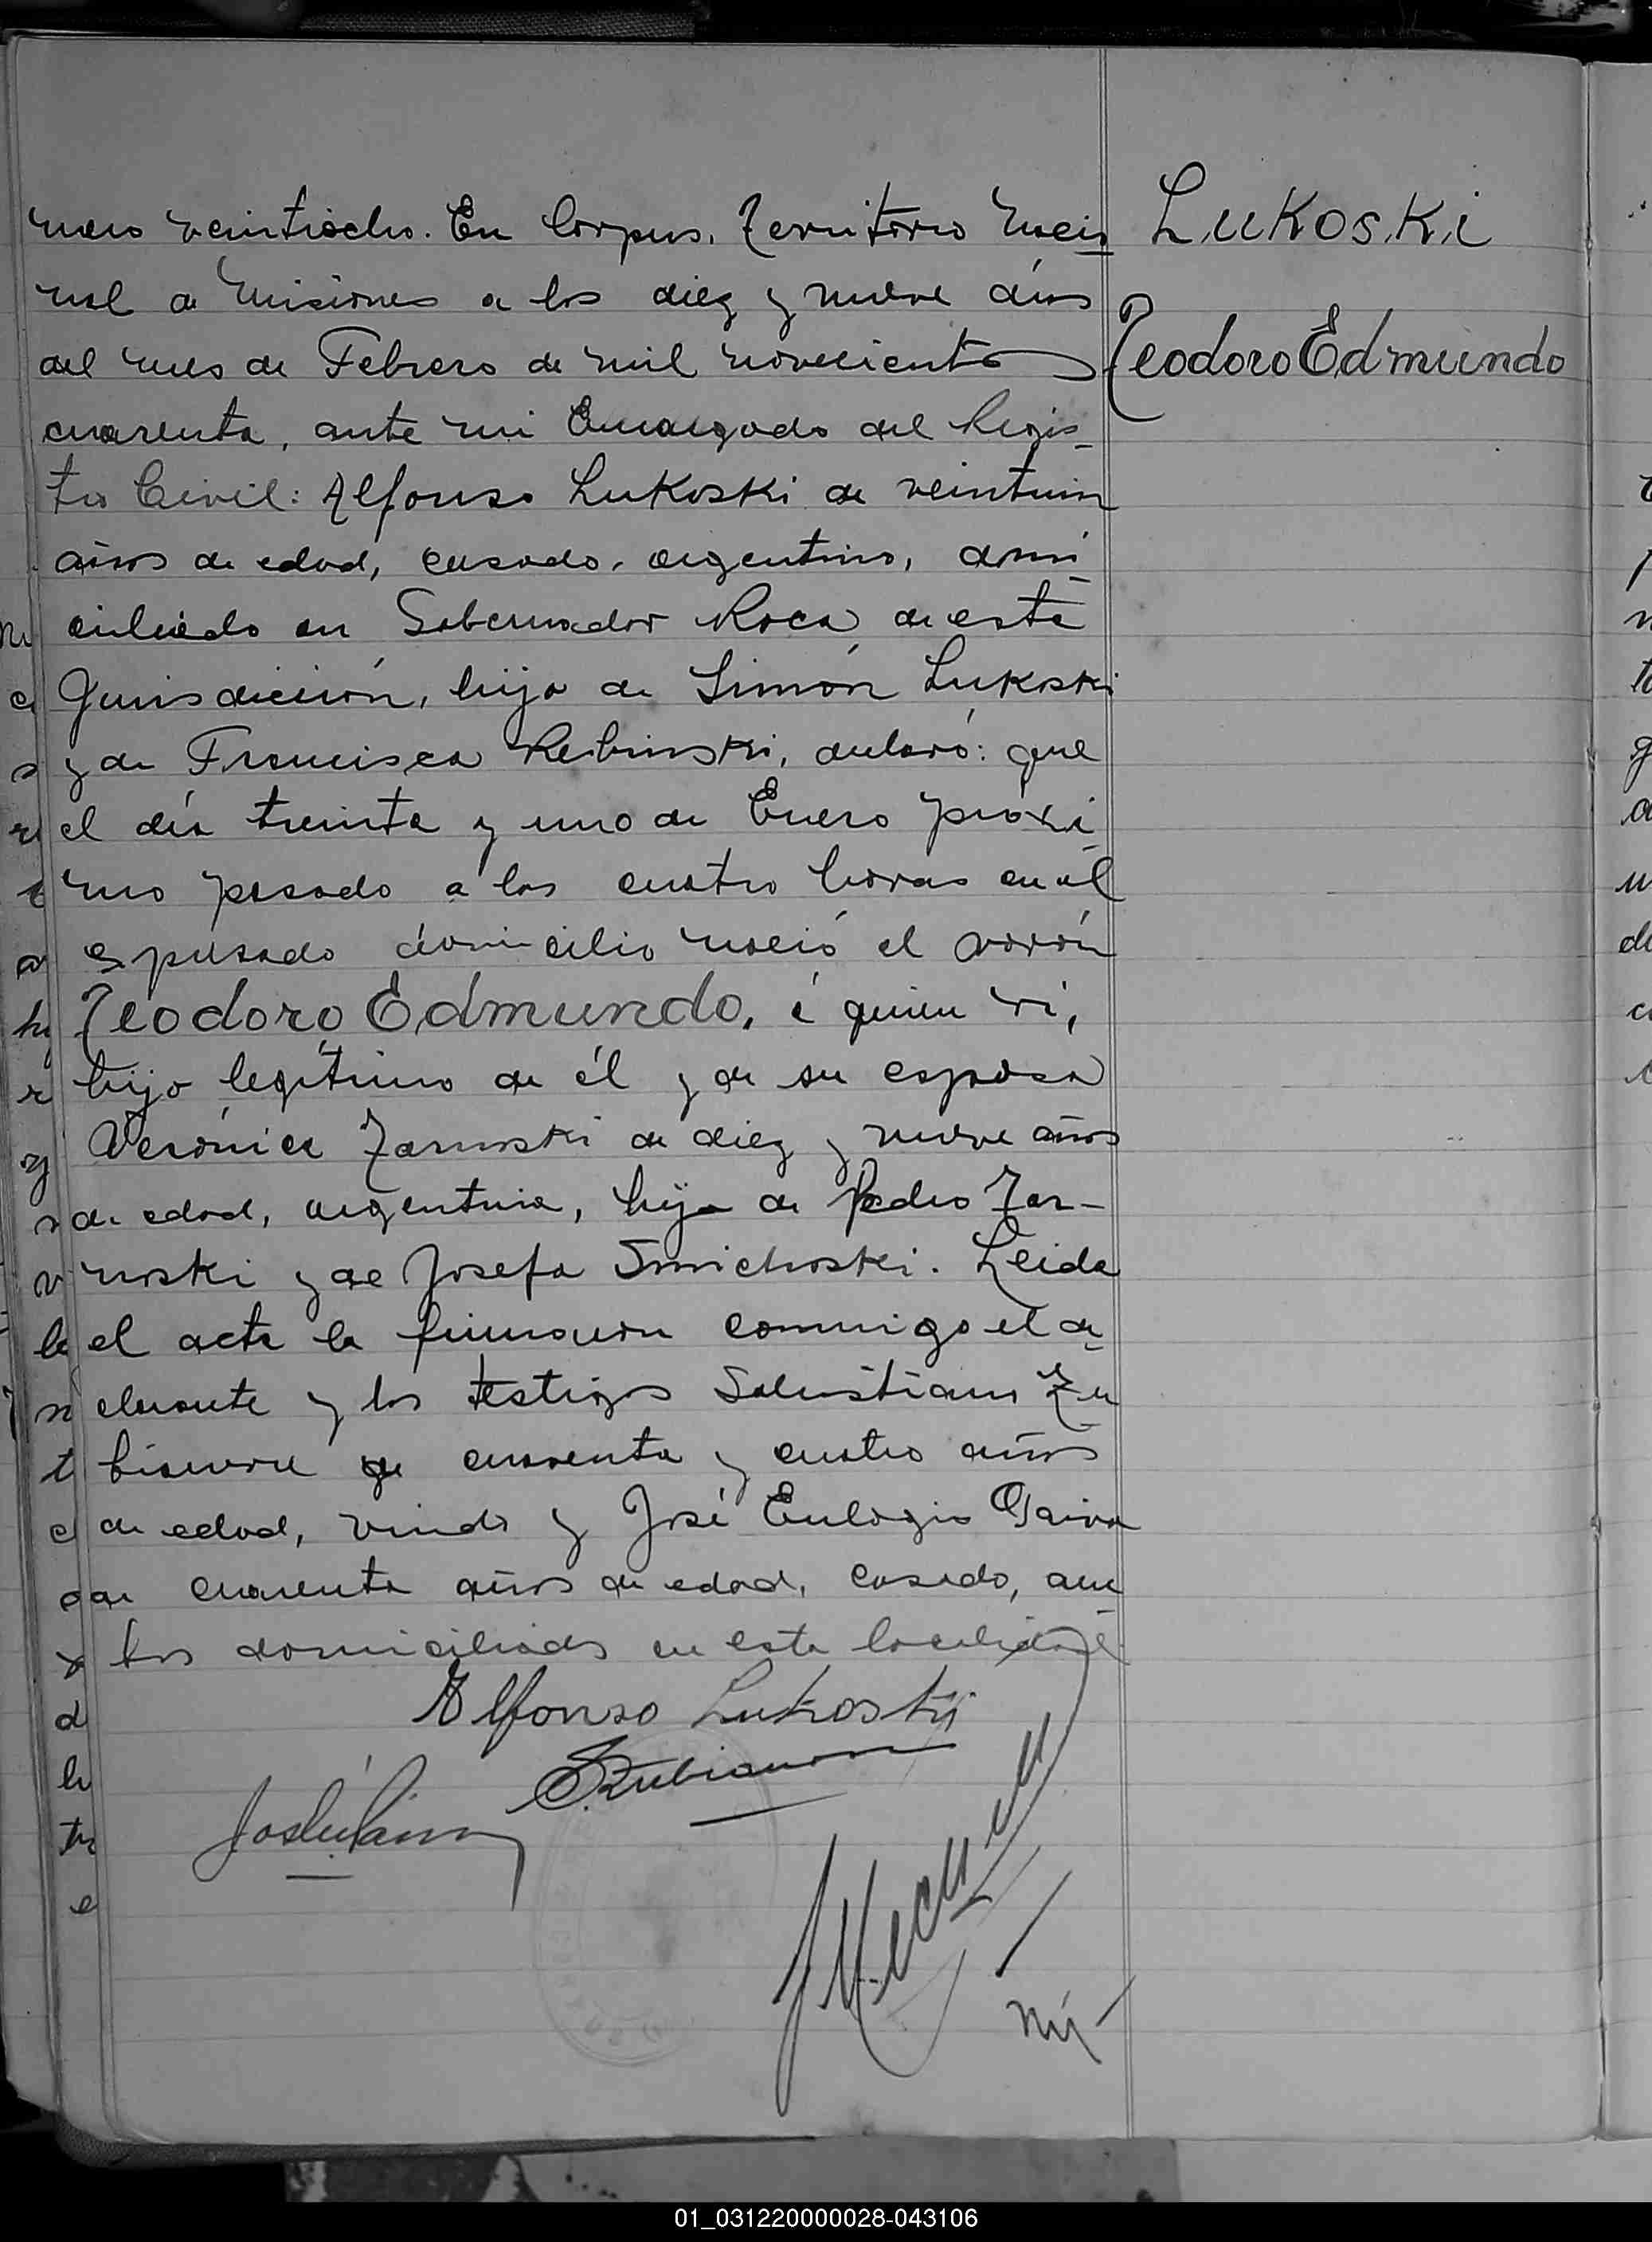 mero veintiocho. En Corpus, Territorio Nacio
nal de Misiones a los diez y nueve dias
del mes de Febrero de mil novecientos
cuarenta, ante mi Encargado del Regis-
tro Civil: Alfonso Lukoski de veintiun
años de edad, casado, argentino, domi-
ciliado en Gobernador Roca de esta
Jurisdicción, hijo de Simón Lukoski
y de Francisca Rebinski, declaró: que
el día treinta y uno de Enero próxi-
mo pasado a las cuatro horas en el
espresado domicilio nació el varón
Teodoro Edmundo, a quien vi,
hijo legítimo de él y de su esposa
Verónica Zarnoski de diez y nueve años
de edad, argentina, hija de Pedro Zar-
noski y de Josefa Smichoski. Leida
el acta la firmaron conmigo el de-
clarante y los testigos Salustiano Zu
biaurre de cuarenta y cuatro años
de edad, viudo y José Eulogio Paiva
de cuarenta años de edad, casado, am-
bos domiciliados en esta localidad
Alfonso Lukoski
S. Zubiaurre
Lukoski
Teodoro Edmundo
01_031220000028-043106